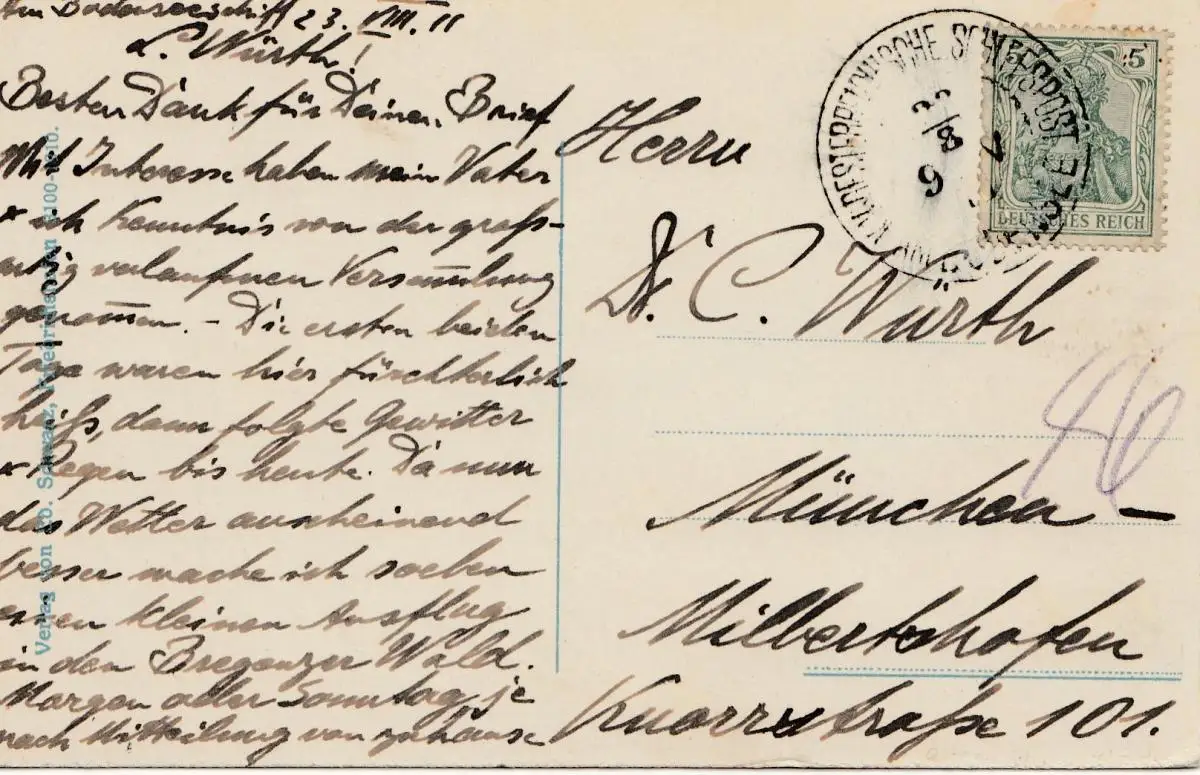 Am Bodenseeschiff 23. VIII. 11
L. Würth!
Besten Dank für Deinen Brief
Mit Interesse haben mein Vater
+ ich Kenntnis von der groß-
artig verlaufenen Versam̄lung
genom̄en. – Die ersten beiden
Tage waren hier fürchterlich
heiß, dann folgte Gewitter
+ Regen bis heute. Da nun
das Wetter anscheinend
besser mache ich soeben
einen kleinen Ausflug
in den Bregenzer Wald.
Morgen oder Sonntag je
nach Mitteilung von zuhause
Verlag von Rob. Schwarz, Friedrichshafen
Herrn
Dr. C. Würth
München –
Milbertshofen
Knorrstraße 101.
46
5
DEUTSCHES REICH
OESTERREICHISCHE SCHIFFSPOST